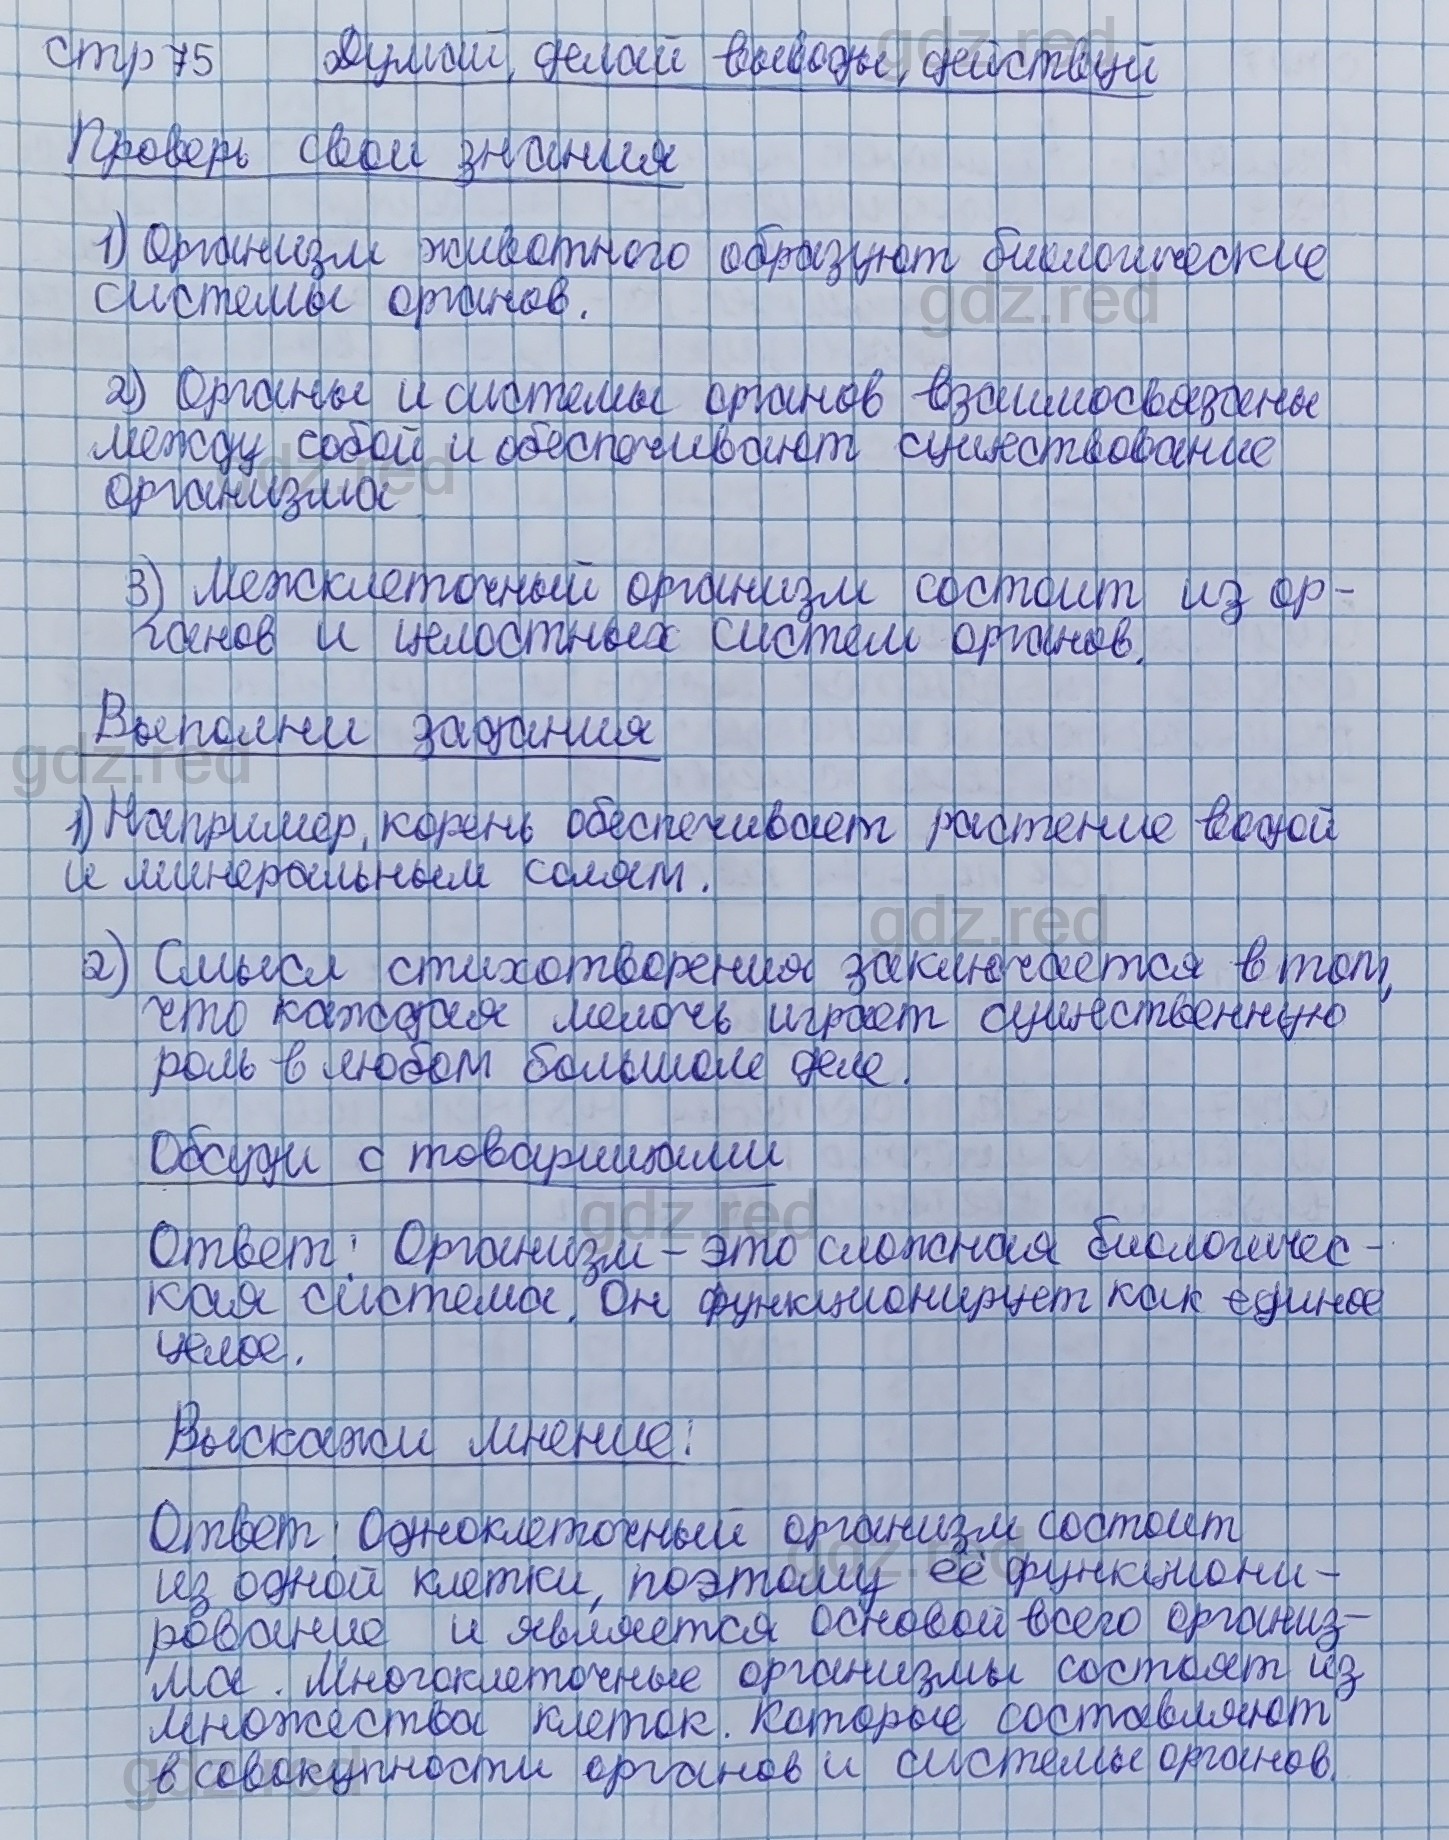 стр 75 Думай, делай выводы, действуй
Проверь свои знания
1) Организм животного образуют биологические
системы органов.
2) Органы и системы органов взаимосвязаны
между собой и обеспечивают существование
организма.
3) Межклеточный организм состоит из ор-
ганов и целостных систем органов.
Выполни задания
1) Например, корень обеспечивает растение водой
и минеральным солям.
2) Смысл стихотворения заключается в том,
что каждая мелочь играет существенную
роль в любом большом деле.
Обсуди с товарищами
Ответ: Организм – это сложная биологичес-
кая система. Он функционирует как единое
целое.
Выскажи мнение:
Ответ: Одноклеточный организм состоит
из одной клетки, поэтому её функциони-
рование и является основой всего организ-
ма. Многоклеточные организмы состоят из
множества клеток. Которые составляют
в совокупности органов и системы органов.
gdz.red
gdz.red
gdz.red
gdz.red
gdz.red
gdz.red
gdz.red
gdz.red